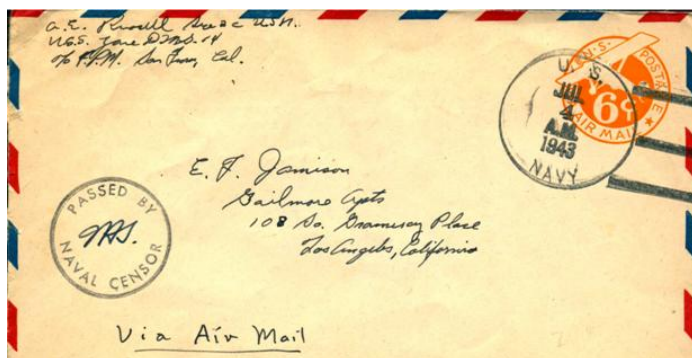 A. E. Russell Sea 2c USN.
U.S.S. Zane DMS-14
c/o F.P.M. San Fran, Cal.
U.S. POSTAGE
6¢
AIR MAIL
U. S.
JUL
4
A.M.
1943
NAVY
E. F. Jamison
Gailmore Apts
108 So. Gramercy Place
Los Angeles, California
PASSED BY
NAVAL CENSOR
Via Air Mail